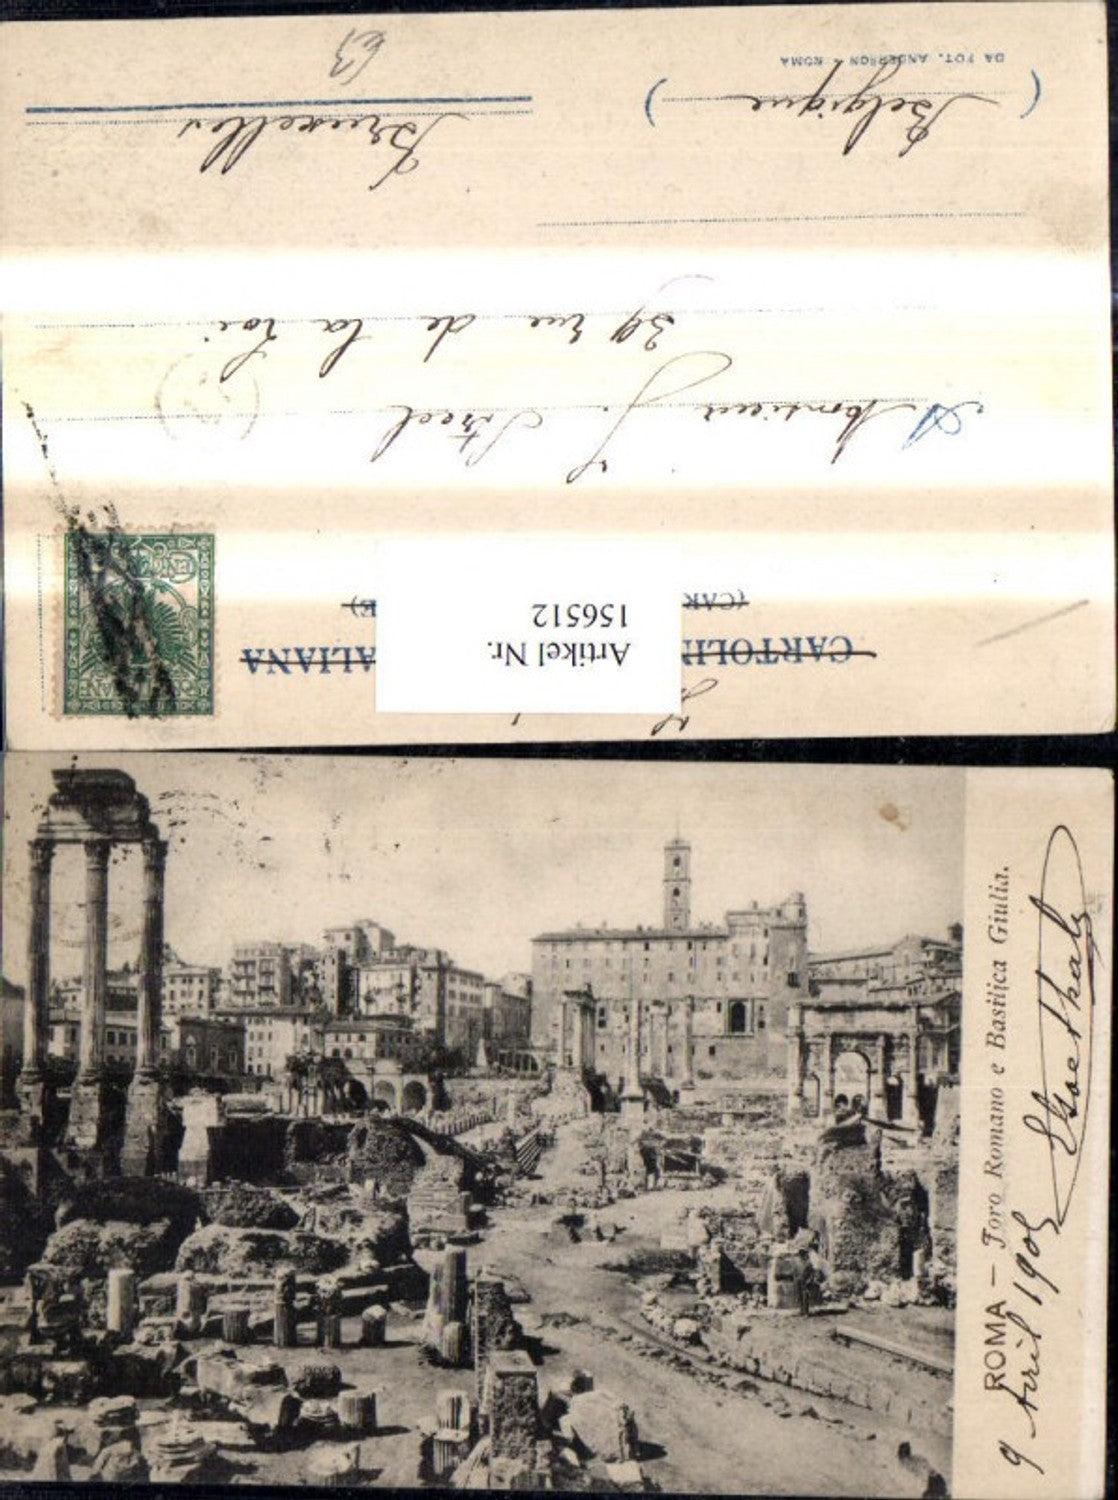 CARTOLI ALIANA
(CAR E)
Artikel Nr.
156512
A Monsieur J.
39 rue de la Loi
Bruxelles
Belgique
63
DA FOT. ANDERSON - ROMA
ROMA — Foro Romano e Basilica Giulia.
9 Avril 1905